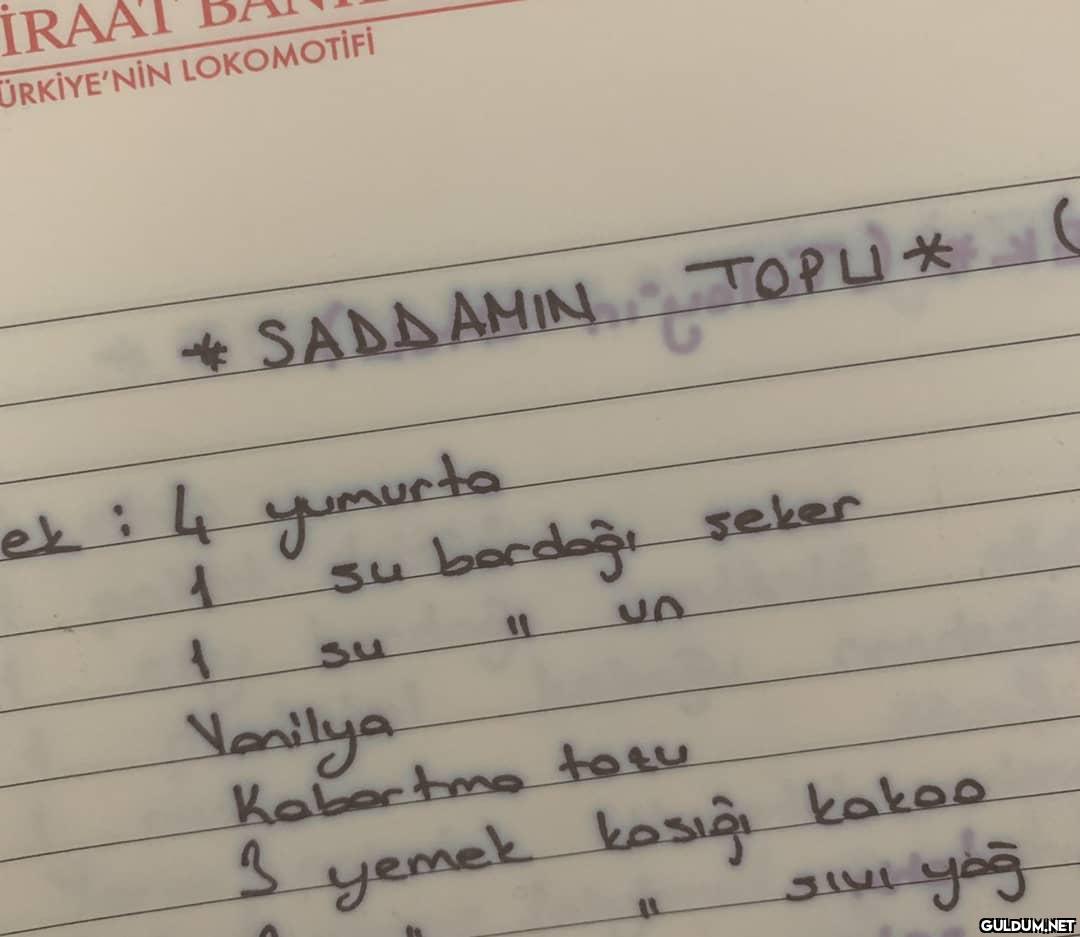 İRAAT BAN
ÜRKİYE'NİN LOKOMOTİFİ
* SADDAMIN TOPU * (
ek : 4 yumurta
1 su bardağı seker
1 su " un
Vanilya
Kabartma tozu
3 yemek kasığı kakao
" " sıvı yağ
GULDUM.NET